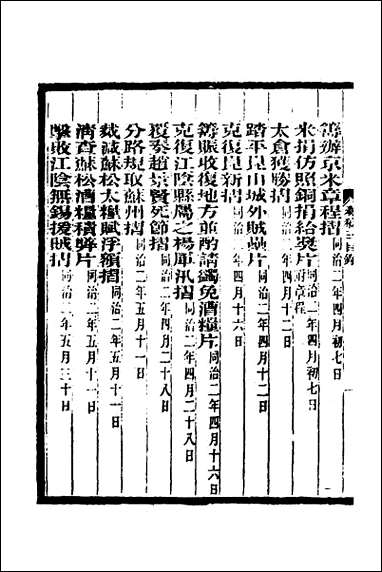 籌辦京米章程摺同治二年四月初七日
米捐仿照銅捐給獎片附章程 同治二年四月初七日
太倉獲勝摺同治二年四月十二日
踏平崑山城外賊壘片同治二年四月十二日
克復崑新摺同治二年四月十六日
籌賑收復地方並酌請蠲免漕糧片同治二年四月十六日
克復江陰縣屬之楊厙汛摺同治二年四月二十八日
覆奏趙景賢死節摺同治二年四月二十八日
分路規取蘇州摺同治二年五月十一日
裁減蘇松太糧賦浮額摺同治二年五月十一日
清查蘇松漕糧積弊片同治二年五月十一日
擊敗江陰無錫援賊摺同治二年五月三十日